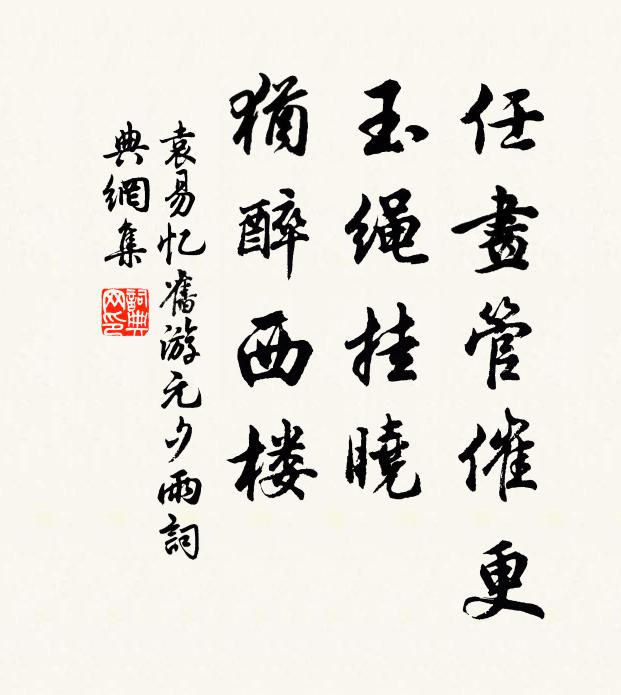 任畫管催更
玉绳挂曉
猶醉西楼
袁易忆舊游元夕雨詞
典網集
詞典网印